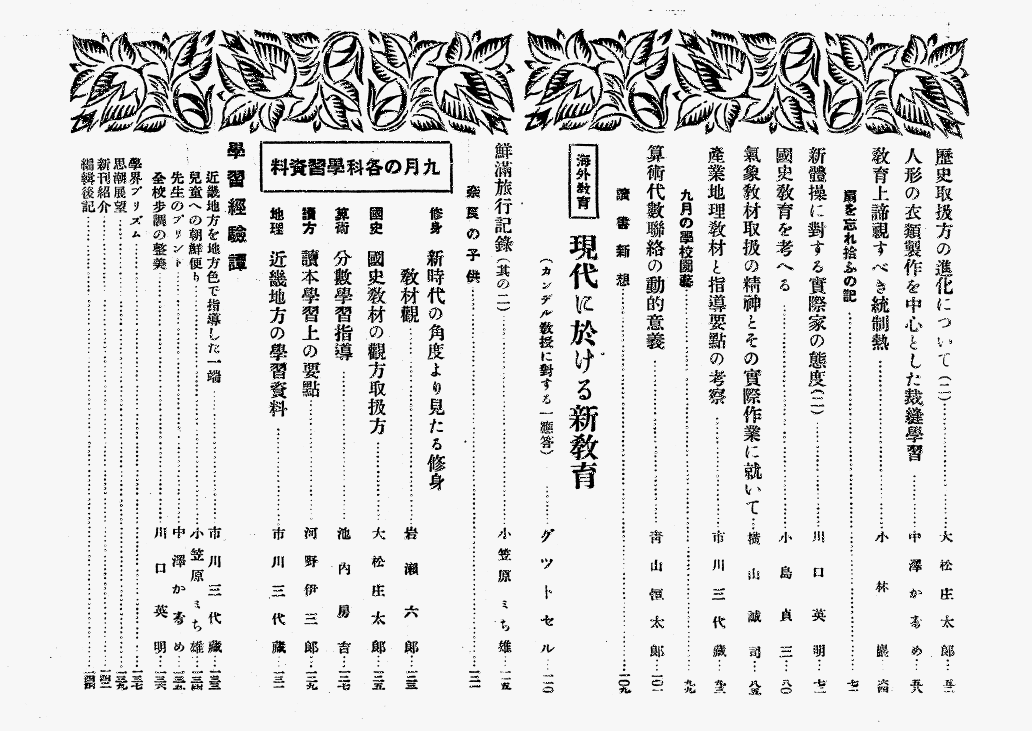 歷史取扱方の進化について(二)………大松庄太郎…五二
人形の衣類製作を中心とした裁縫學習………中澤かあめ…五八
教育上諦視すべき統制熱………小林巖…六四
扇を忘れ拾ふの記………七一
新體操に對する實際家の態度(二)………川口英明…七二
國史教育を考へる………小島貞三…八〇
氣象教材取扱の精神とその實際作業に就いて…橫山誠司…八五
產業地理教材と指導要點の考察………市川三代藏…九三
九月の學校園藝………九九
算術代數聯絡の動的意義………青山恒太郎…一〇二
讀書新想………一〇九
海外教育
現代に於ける新敎育
(カンデル敎授に對する一應答)………グツトセル…一一〇
鮮滿旅行記錄(其の二)………小笠原ミち雄…一一五
奈良の子供………一三一
九月の各科學習資料
修身 新時代の角度より見たる修身
教材觀………岩瀨六郎…一三三
國史 國史教材の觀方取扱方………大松庄太郎…一三五
算術 分數學習指導………池內房吉…一三七
讀方 讀本學習上の要點………河野伊三郎…一三九
地理 近畿地方の學習資料………市川三代藏…一三一
學習經驗譚
近畿地方を地方色で指導した一端………市川三代藏…一三三
兒童への朝鮮便り………小笠原ミち雄…一三四
先生のプリント………中澤かあめ…一三五
全校步調の整美………川口英明…一三六
學界プリズム………一三七
思潮展望………一三九
新刊紹介………一四二
編輯後記………一四四